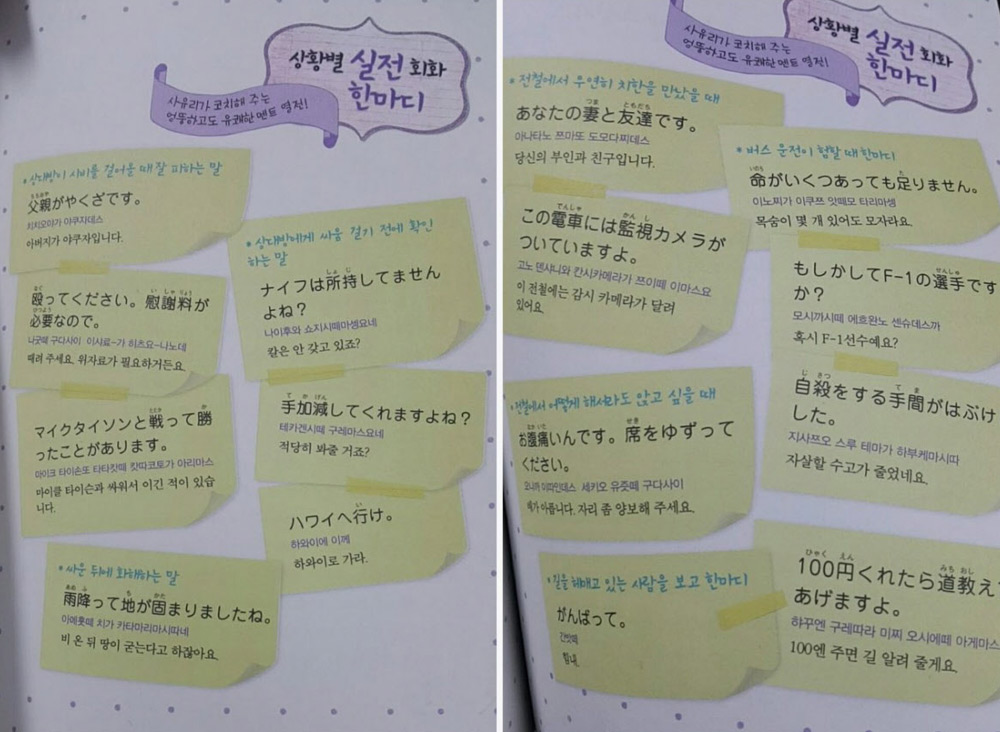 상황별 실전 회화
한마디
사유리가 코치해 주는
엉뚱하고도 유쾌한 멘트 열전!
• 상대방이 시비를 걸어올 때 잘 피하는 말
父親がやくざです。
치치오야가 야쿠자데스
아버지가 야쿠자입니다.
殴ってください。慰謝料が
必要なので。
나굿떼 구다사이 이샤료-가 히츠요-나노데
때려 주세요. 위자료가 필요하거든요.
マイクタイソンと戦って勝
ったことがあります。
마이크 타이손또 타타캇떼 캇따코토가 아리마스
마이클 타이슨과 싸워서 이긴 적이 있습
니다.
• 상대방에게 싸움 걸기 전에 확인
하는 말
ナイフは所持してません
よね?
나이후와 쇼지시떼마셍요네
칼은 안 갖고 있죠?
手加減してくれますよね?
테카겐시떼 구레마스요네
적당히 봐줄 거죠?
ハワイへ行け。
하와이에 이께
하와이로 가라.
• 싸운 뒤에 화해하는 말
雨降って地が固まりましたね。
아메훗떼 치가 카타마리마시따네
비 온 뒤 땅이 굳는다고 하잖아요.
상황별 실전 회화
한마디
사유리가 코치해 주는
엉뚱하고도 유쾌한 멘트 열전!
• 전철에서 우연히 치한을 만났을 때
あなたの妻と友達です。
아나타노 쯔마또 도모다찌데스
당신의 부인과 친구입니다.
この電車には監視カメラが
ついていますよ。
고노 덴샤니와 칸시카메라가 쯔이떼 이마스요
이 전철에는 감시 카메라가 달려
있어요.
• 전철에서 어떻게 해서라도 앉고 싶을 때
お腹痛いんです。席をゆずって
ください。
오나까 이따인데스 세키오 유즛떼 구다사이
배가 아픕니다. 자리 좀 양보해 주세요.
• 길을 헤매고 있는 사람을 보고 한마디
がんばって。
간밧떼
힘내.
• 버스 운전이 험할 때 한마디
命がいくつあっても足りません。
이노찌가 이쿠쯔 앗떼모 타리마셍
목숨이 몇 개 있어도 모자라요.
もしかしてF-1の選手です
か?
모시까시떼 에흐완노 센슈데스까
혹시 F-1선수예요?
自殺をする手間がはぶけ
した。
지사쯔오 스루 테마가 하부케마시따
자살할 수고가 줄었네요.
100円くれたら道教え
あげますよ。
햐꾸엔 구레따라 미찌 오시에떼 아게마스
100엔 주면 길 알려 줄게요.